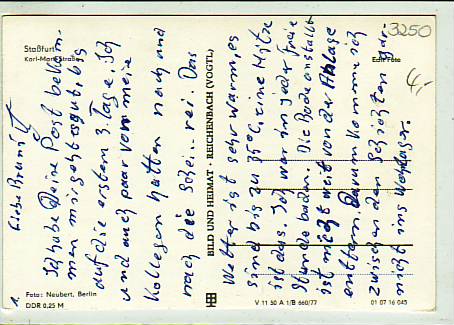 Staßfurt
Karl-Marx-Straße
3250
Echt Foto
4,-
1.
Liebe Brunit
Ich habe Deine Post bekom-
men mir geht es gut, bis
auf die ersten 3. Tage. Ich
und auch paar von meine
Kollegen hatten nach und
nach die Schei.. rei. Das
Wetter ist sehr warm, es
sind bis zu 35°C, eine Hitze
ist das. Ich war in jeder Freie
Stunde baden. Die Badeanstalt
ist nicht weit von der Anlage
entfern. Darum komme ich
zwischen den Schichten gar-
nicht ins Wohlager.
BILD UND HEIMAT · REICHENBACH (VOGTL)
Foto: Neubert, Berlin
DDR 0,25 M
BH
V 11 50 A 1/B 660/77
01 07 16 045